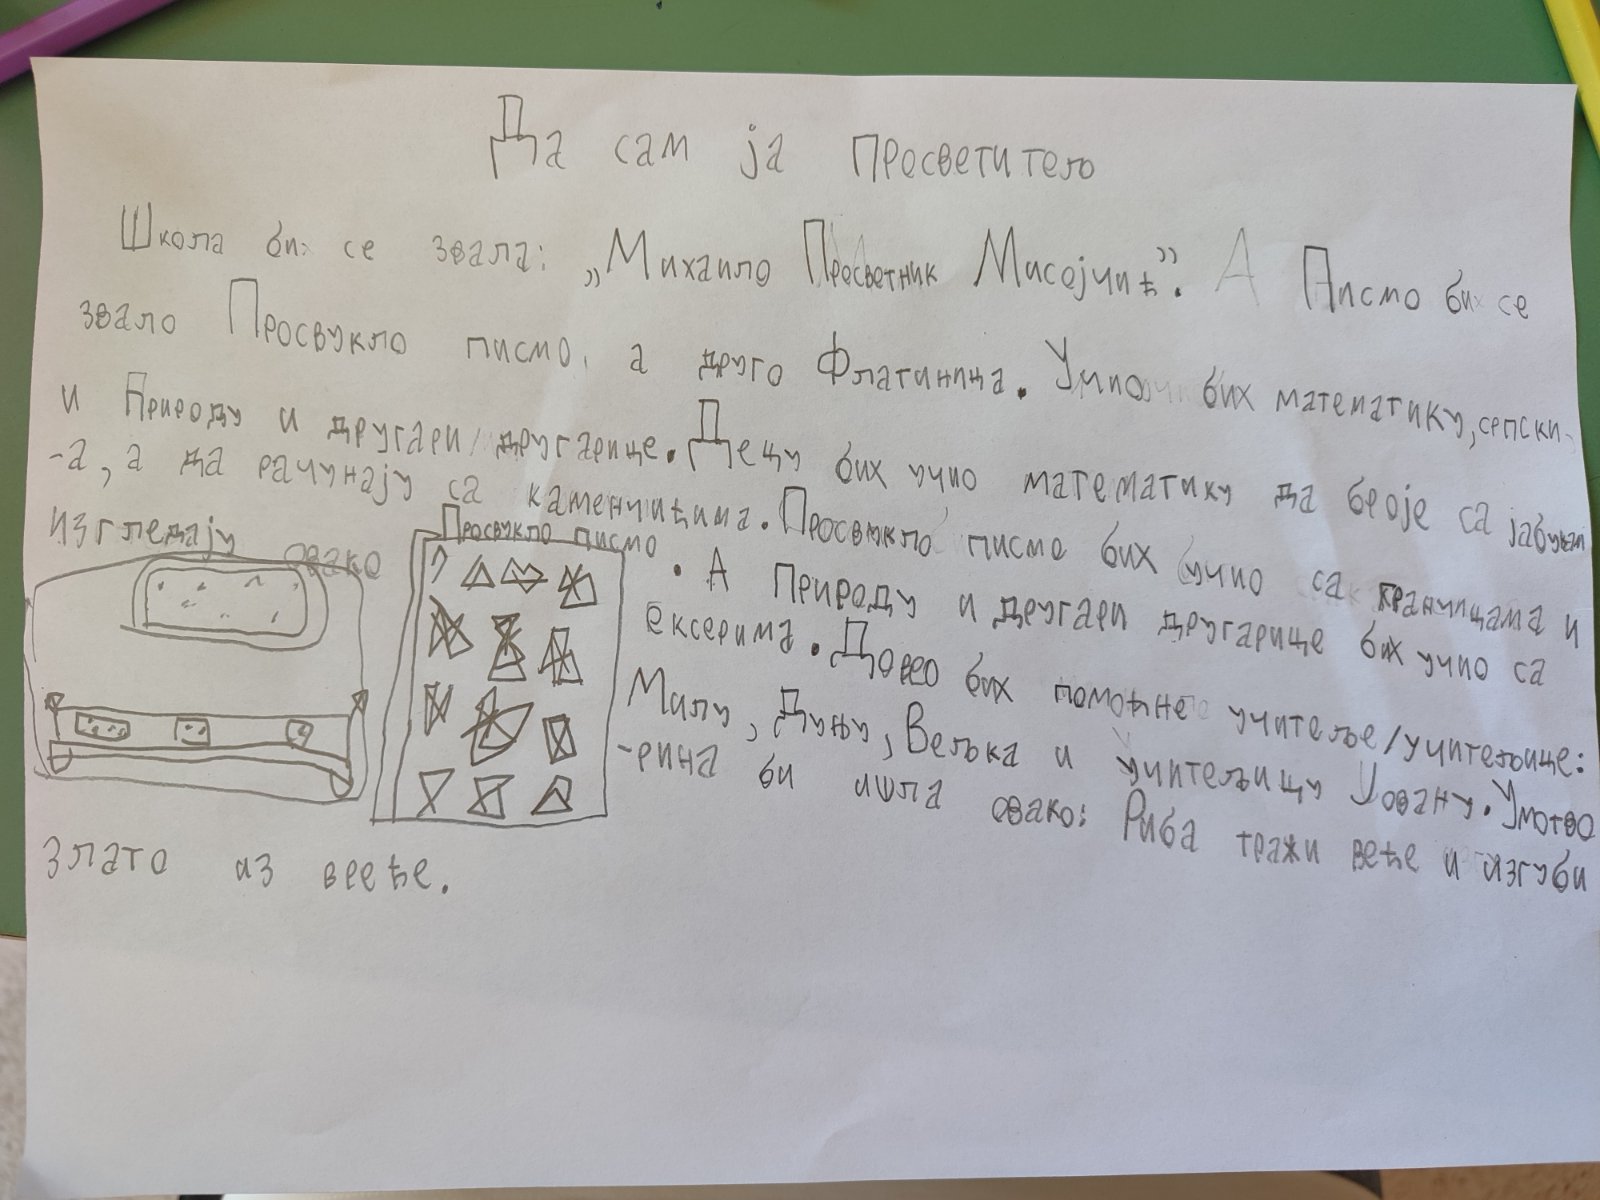 Да сам ја Просветитељ
Школа би се звала: „Михаило Просветник Мисојчић”. А Писмо би се
звало Просвукло писмо, а друго Флатиница. Учио бих математику, српски
и Природу и другари/другарице. Децу бих учио математику да броје са јабукам
-а, а да рачунају са каменчићима. Просвукло писмо бих учио са гранчицама и
изгледају овако
Просвукло писмо
. А Природу и другари другарице бих учио са
ексерима. Довео бих помоћне учитеље/учитељице:
Милу, Дуњу, Вељка и учитељицу Јовану. Умотво
-рина би ишла овако: Риба тражи веће и изгуби
злато из вреће.